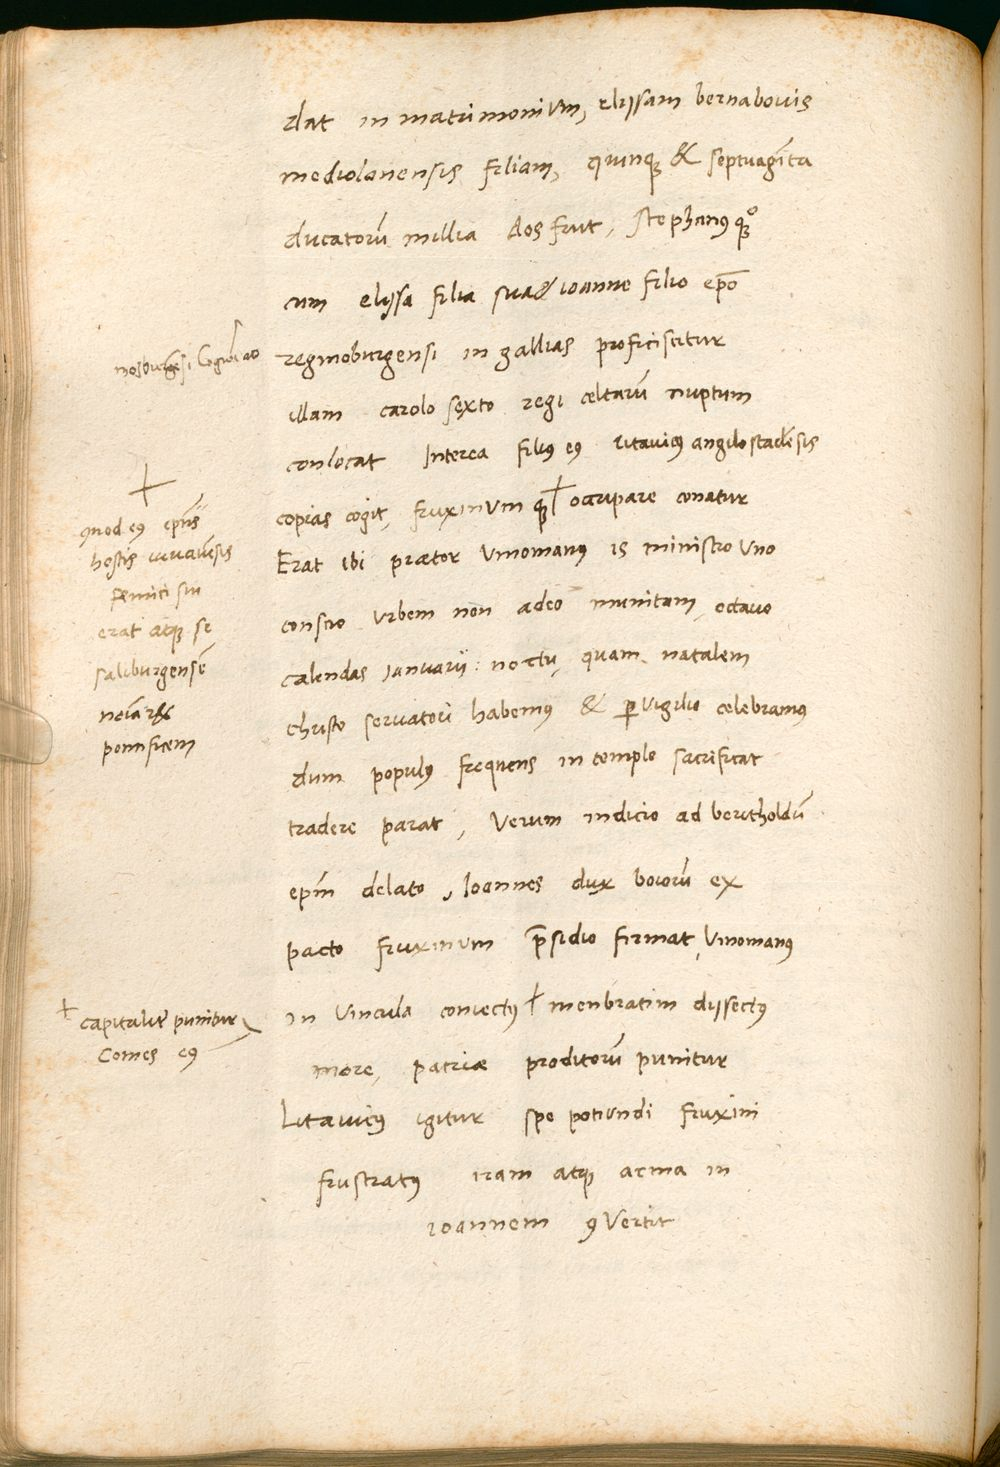 dat in matrimonium, elyssam bernabouis
mediolanensis filiam, quinqȝ & septuagīta
ducatorū millia dos fuit, Stephanꝰ qȝͦ
cum elyssa filia sua & ioanne filio ep̄o
reginoburgensi in gallias proficiscitur
illam carolo sexto regi celtarū nuptum
conlocat Interea filiꝰ eꝰ litauicꝰ angilostadēsis
copias cogit, fruxinum qȝ † occupare conatur
Erat ibi prætor Vmomanꝰ is ministro Vno
conscio Vrbem non adeo munitam, octauo
calendas Januarij: noctu, quam natalem
christo seruatori habemꝰ & ꝑVigilio celebramꝰ
dum populꝰ frequens in templo sacrificat
tradere parat, Verum indicio ad beritholdū
ep̄m delato, Ioannes dux boiorū ex
pacto fruxinum p̄sidio firmat, Vmomanꝰ
in Vincula coniectꝰ † menbratim dyssectꝰ
more, patriæ proditorū punitur
Litauicꝰ igitur spe potiundi fruxini
frustratꝰ iram atqȝ arma in
ioannem ꝯVertit
+
quod eꝰ
hostis iuuauēsis
erat atqȝ se
saliburgensē
pontificem
+ capitaliter punitur
Comes eꝰ